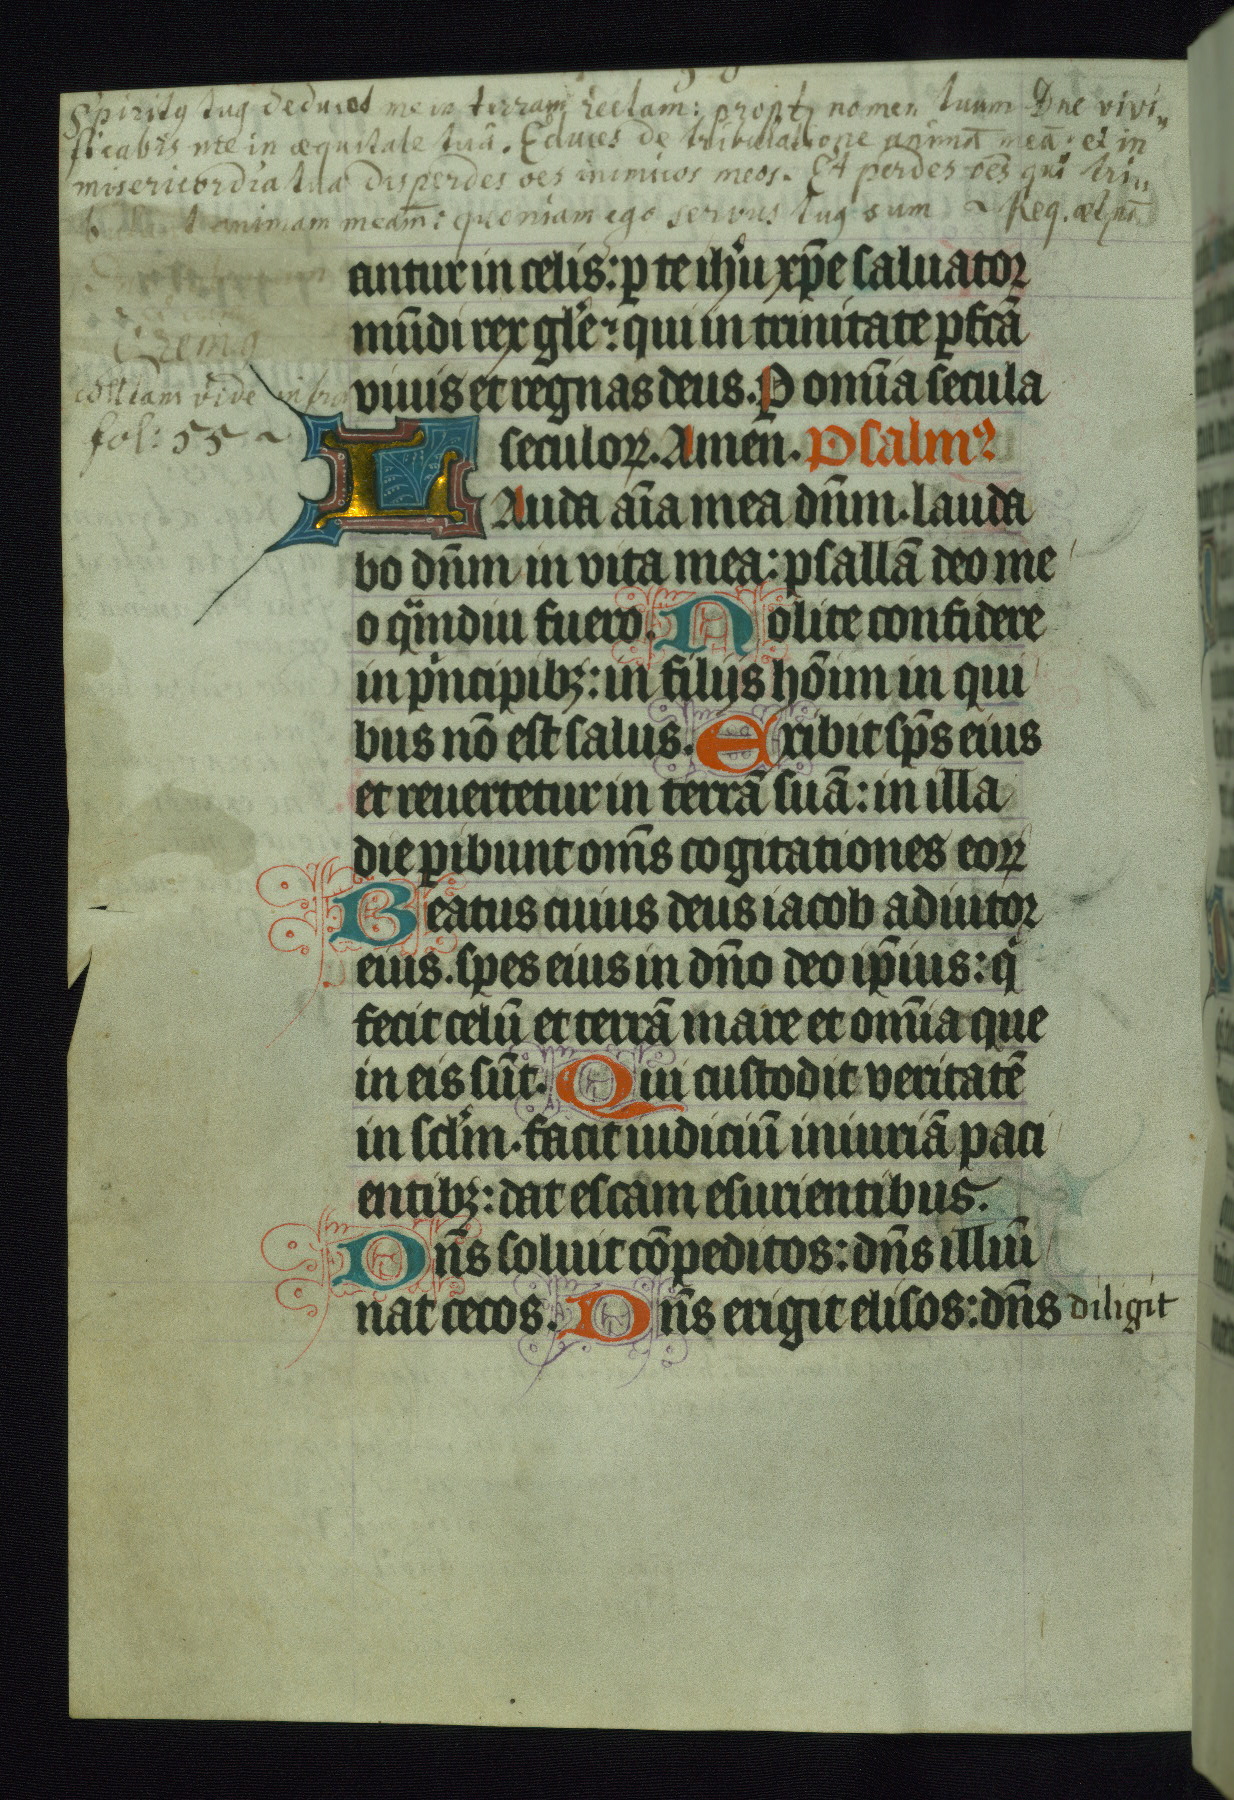 Spiritꝰ tuꝰ deducet me in terram rectam: propt nomen tuum Dne vivi„
ficabis me in æquitate tuâ. Educes de tribulatione animā meā: et in
misericordia tua disperdes oēs inimicos meos. Et perdes oēs qui tri„
b t animam meam̄: quoniam ego servus tuꝰ sum ~ Req. æt
antur in celis: ꝑ te ihū xp̄e saluator
mūdi rex gl̄e: qui in trinitate ꝑfcā
viuis et regnas deus. P omīa secula
collectam vide infra
fol: 55 ~
seculoꝝ. Amen. Psalmꝰ
LAuda aīa mea dn̄m. lauda
bo dn̄m in vita mea: psallā deo me
o qͣmdiu fuero. Nolite confidere
in pͥncipibꝫ: in filijs hōim in qui
bus nō est salus. Exibit sp̄s eius
et reuertetur in terrā suā: in illa
die ꝑibunt om̄s cogitationes eoꝝ
Beatus cuius deus iacob adiutor
eius. spes eius in dn̄o deo ip̄ius: qͥ
fecit celū et terrā mare et omīa que
in eis sūt. Qui custodit veritatē
in scl̄m. facit iudiciū iniuriā paci
entibꝫ: dat escam esurientibus.
Dn̄s soluit cōpeditos: dn̄s illūi
nat cecos. Dn̄s erigit elisos: dn̄s diligit